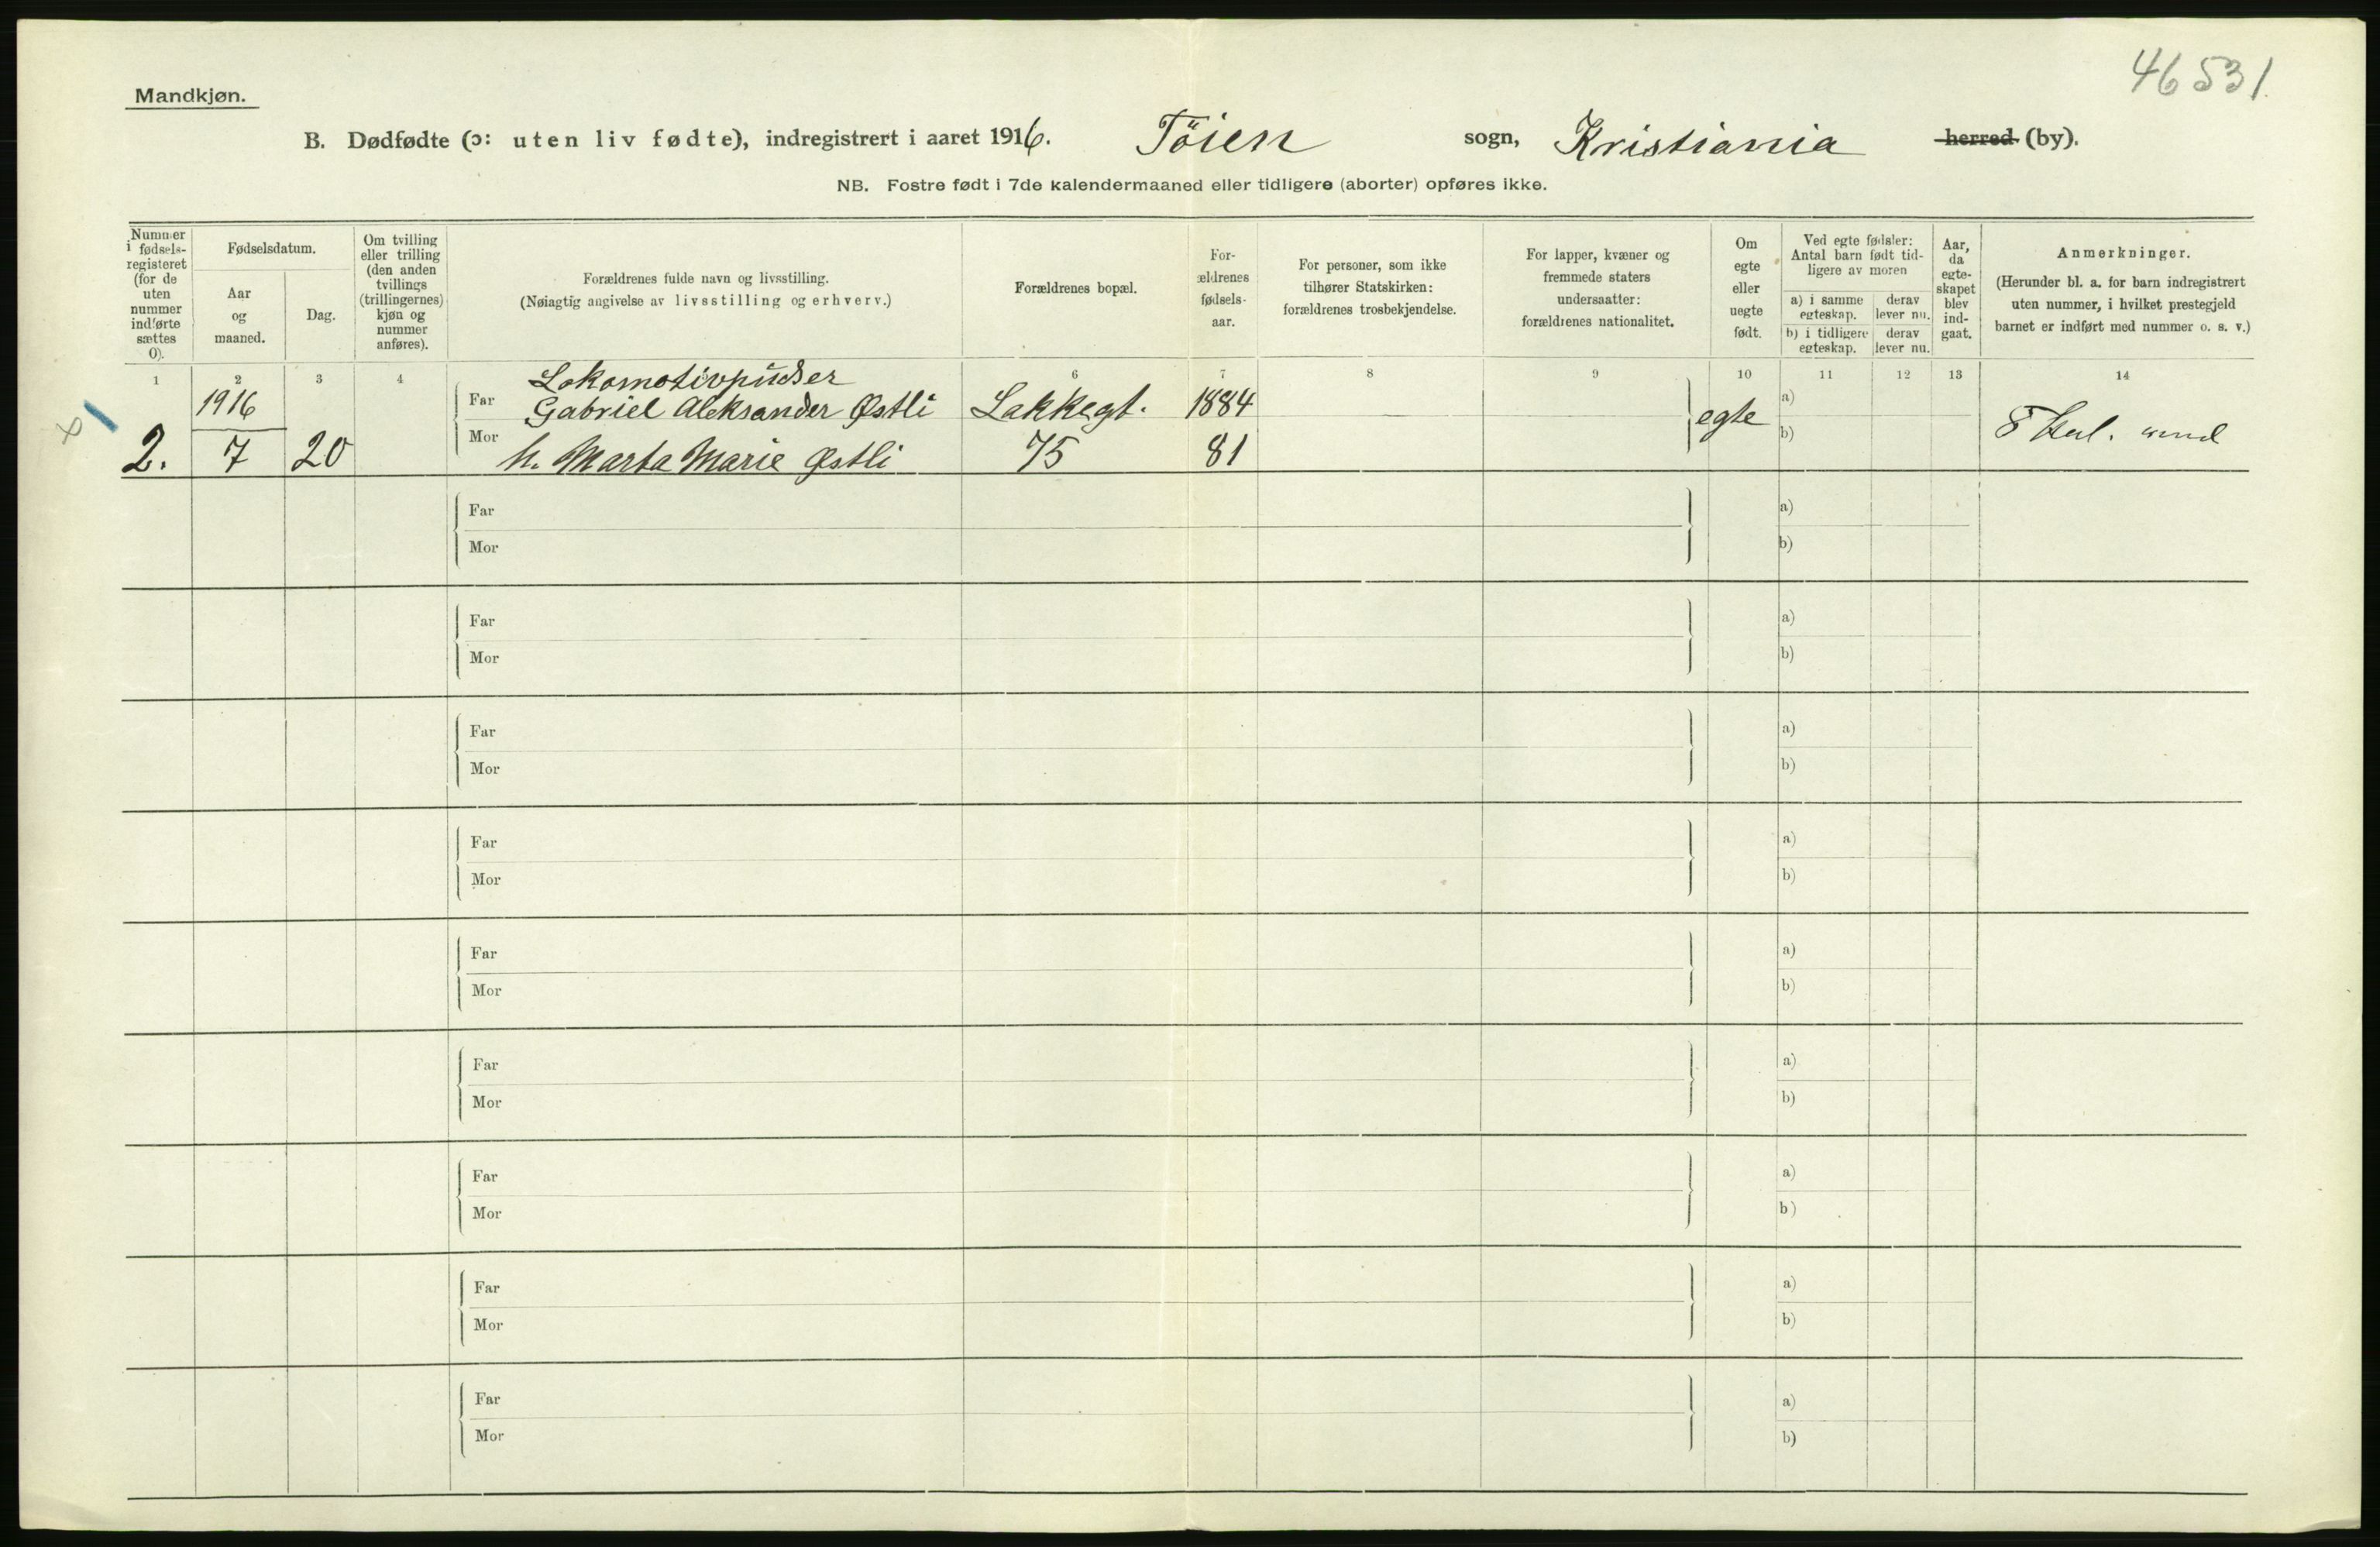 46531
Mandkjøn.
B. Dødfødte (ɔ: uten liv fødte), indregistrert i aaret 1916. Töien sogn, Kristiania herred (by).
NB. Fostre født i 7de kalendermaaned eller tidligere (aborter) opføres ikke.
Nummer i fødsels-registeret (for de uten nummer indførte sættes 0).
Fødselsdatum.
Aar og maaned.
Dag.
Om tvilling eller trilling (den anden tvillings (trillingernes) kjøn og nummer anføres).
Forældrenes fulde navn og livsstilling.
(Nøiagtig angivelse av livsstilling og erhverv.)
Forældrenes bopæl.
For-ældrenes fødsels-aar.
For personer, som ikke tilhører Statskirken: forældrenes trosbekjendelse.
For lapper, kvæner og fremmede staters undersaatter: forældrenes nationalitet.
Om egte eller uegte født.
Ved egte fødsler: Antal barn født tid-ligere av moren
a) i samme egteskap.
derav lever nu.
b) i tidligere egteskap.
derav lever nu.
Aar, da egte-skapet blev ind-gaat.
Anmerkninger.
(Herunder bl. a. for barn indregistrert uten nummer, i hvilket prestegjeld barnet er indført med nummer o. s. v.)
1 2 3 4 6 7 8 9 10 11 12 13 14
Lokomotivpudser
1916 Far Gabriel Aleksander Østli Lakkegt. 1884 egte a)
2. 7 20 Mor h. Marta Marie Østli 75 81 b)
Far a)
Mor b)
Far a)
Mor b)
Far a)
Mor b)
Far a)
Mor b)
Far a)
Mor b)
Far a)
Mor b)
Far a)
Mor b)
Far a)
Mor b)
Far a)
Mor b)